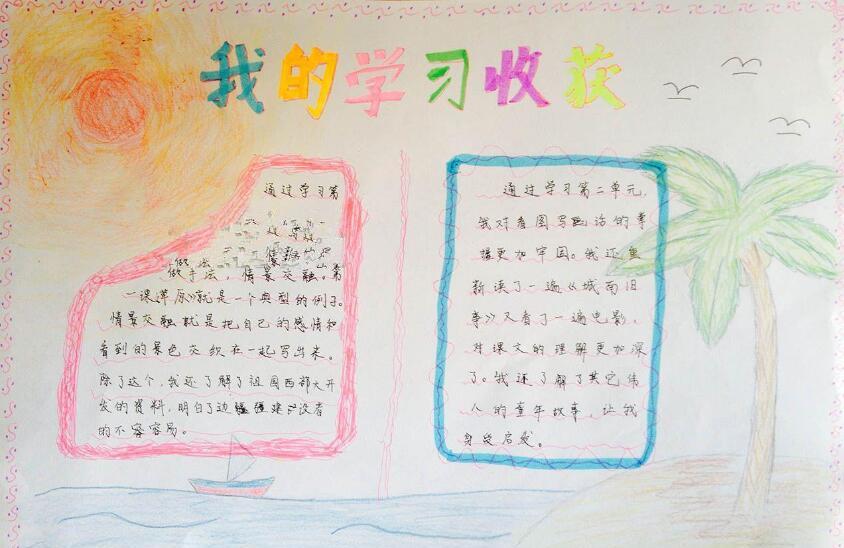 我的学习收获
通过学习第
做手法，情景交融。第
一课《草原》就是一个典型的例子。
情景交融就是把自己的感情和
看到的景色交织在一起写出来。
除了这个，我还了解了祖国西部大开
发的资料，明白了边疆建设者
的不容容易。
通过学习第二单元，
我对看图写话的掌
握更加牢固。我还重
新读了一遍《城南旧
事》又看了一遍电影，
对课文的理解更加深
了。我还了解了其它伟
人的童年故事，让我
身受启发。